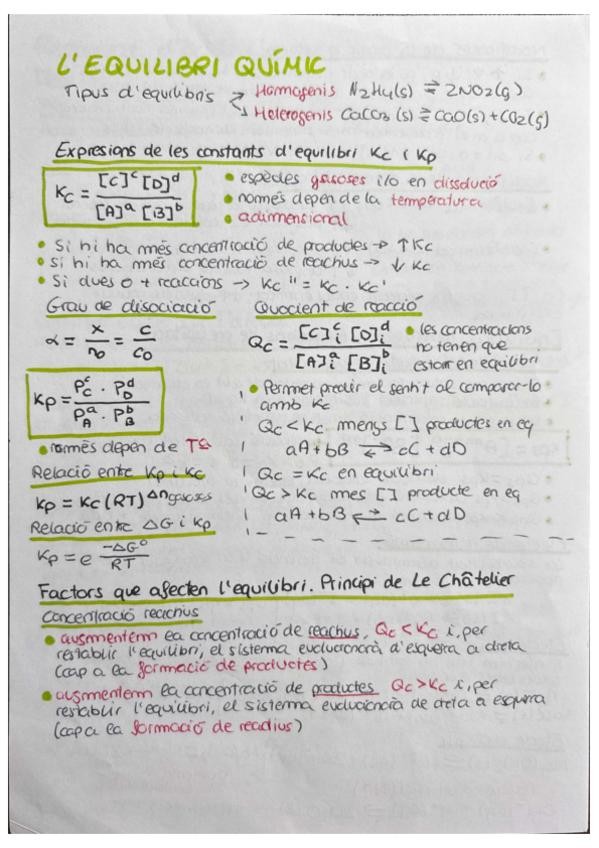 L'EQUILIBRI QUÍMIC
Tipus d'equilibris
Homogenis N2H4(s) ⇌ 2NO2(g)
Heterogenis CaCO3 (s) ⇌ CaO(s) + CO2(g)
Expresions de les constants d'equilibri Kc i Kp
Kc = [C]^c [D]^d / [A]^a [B]^b
• espècies gasoses i/o en dissolució
• només depèn de la temperatura
• adimensional
• Si hi ha més concentració de productes → ↑ Kc
• si hi ha més concentració de reactius → ↓ Kc
• Si dues o + reaccions → Kc'' = Kc · Kc'
Grau de disociació
α = x/n0 = c/c0
Kp = P_C^c · P_D^d / P_A^a · P_B^b
• només depèn de Tª
Relació entre Kp i Kc
Kp = Kc (RT)^Δn gasoses
Relació entre ΔG i Kp
Kp = e -ΔG°/RT
Quocient de reacció
Qc = [C]i^c [D]i^d / [A]i^a [B]i^b
• les concentracions
no tenen que
estar en equilibri
• Permet predir el sentit al comparar-lo
amb Kc
Qc < Kc menys [ ] productes en eq
aA + bB ⇌ cC + dD
Qc = Kc en equilibri
Qc > Kc mes [ ] producte en eq
aA + bB ⇌ cC + dD
Factors que afecten l'equilibri. Principi de Le Châtelier
Concentració reactius
• augmentem la concentració de reactius, Qc < Kc i, per
restablir l'equilibri, el sistema evolucionarà d'esquerra a dreta
(cap a la formació de productes)
• augmentem la concentració de productes Qc > Kc i, per
restablir l'equilibri, el sistema evolucionarà de dreta a esquerra
(cap a la formació de reactius)